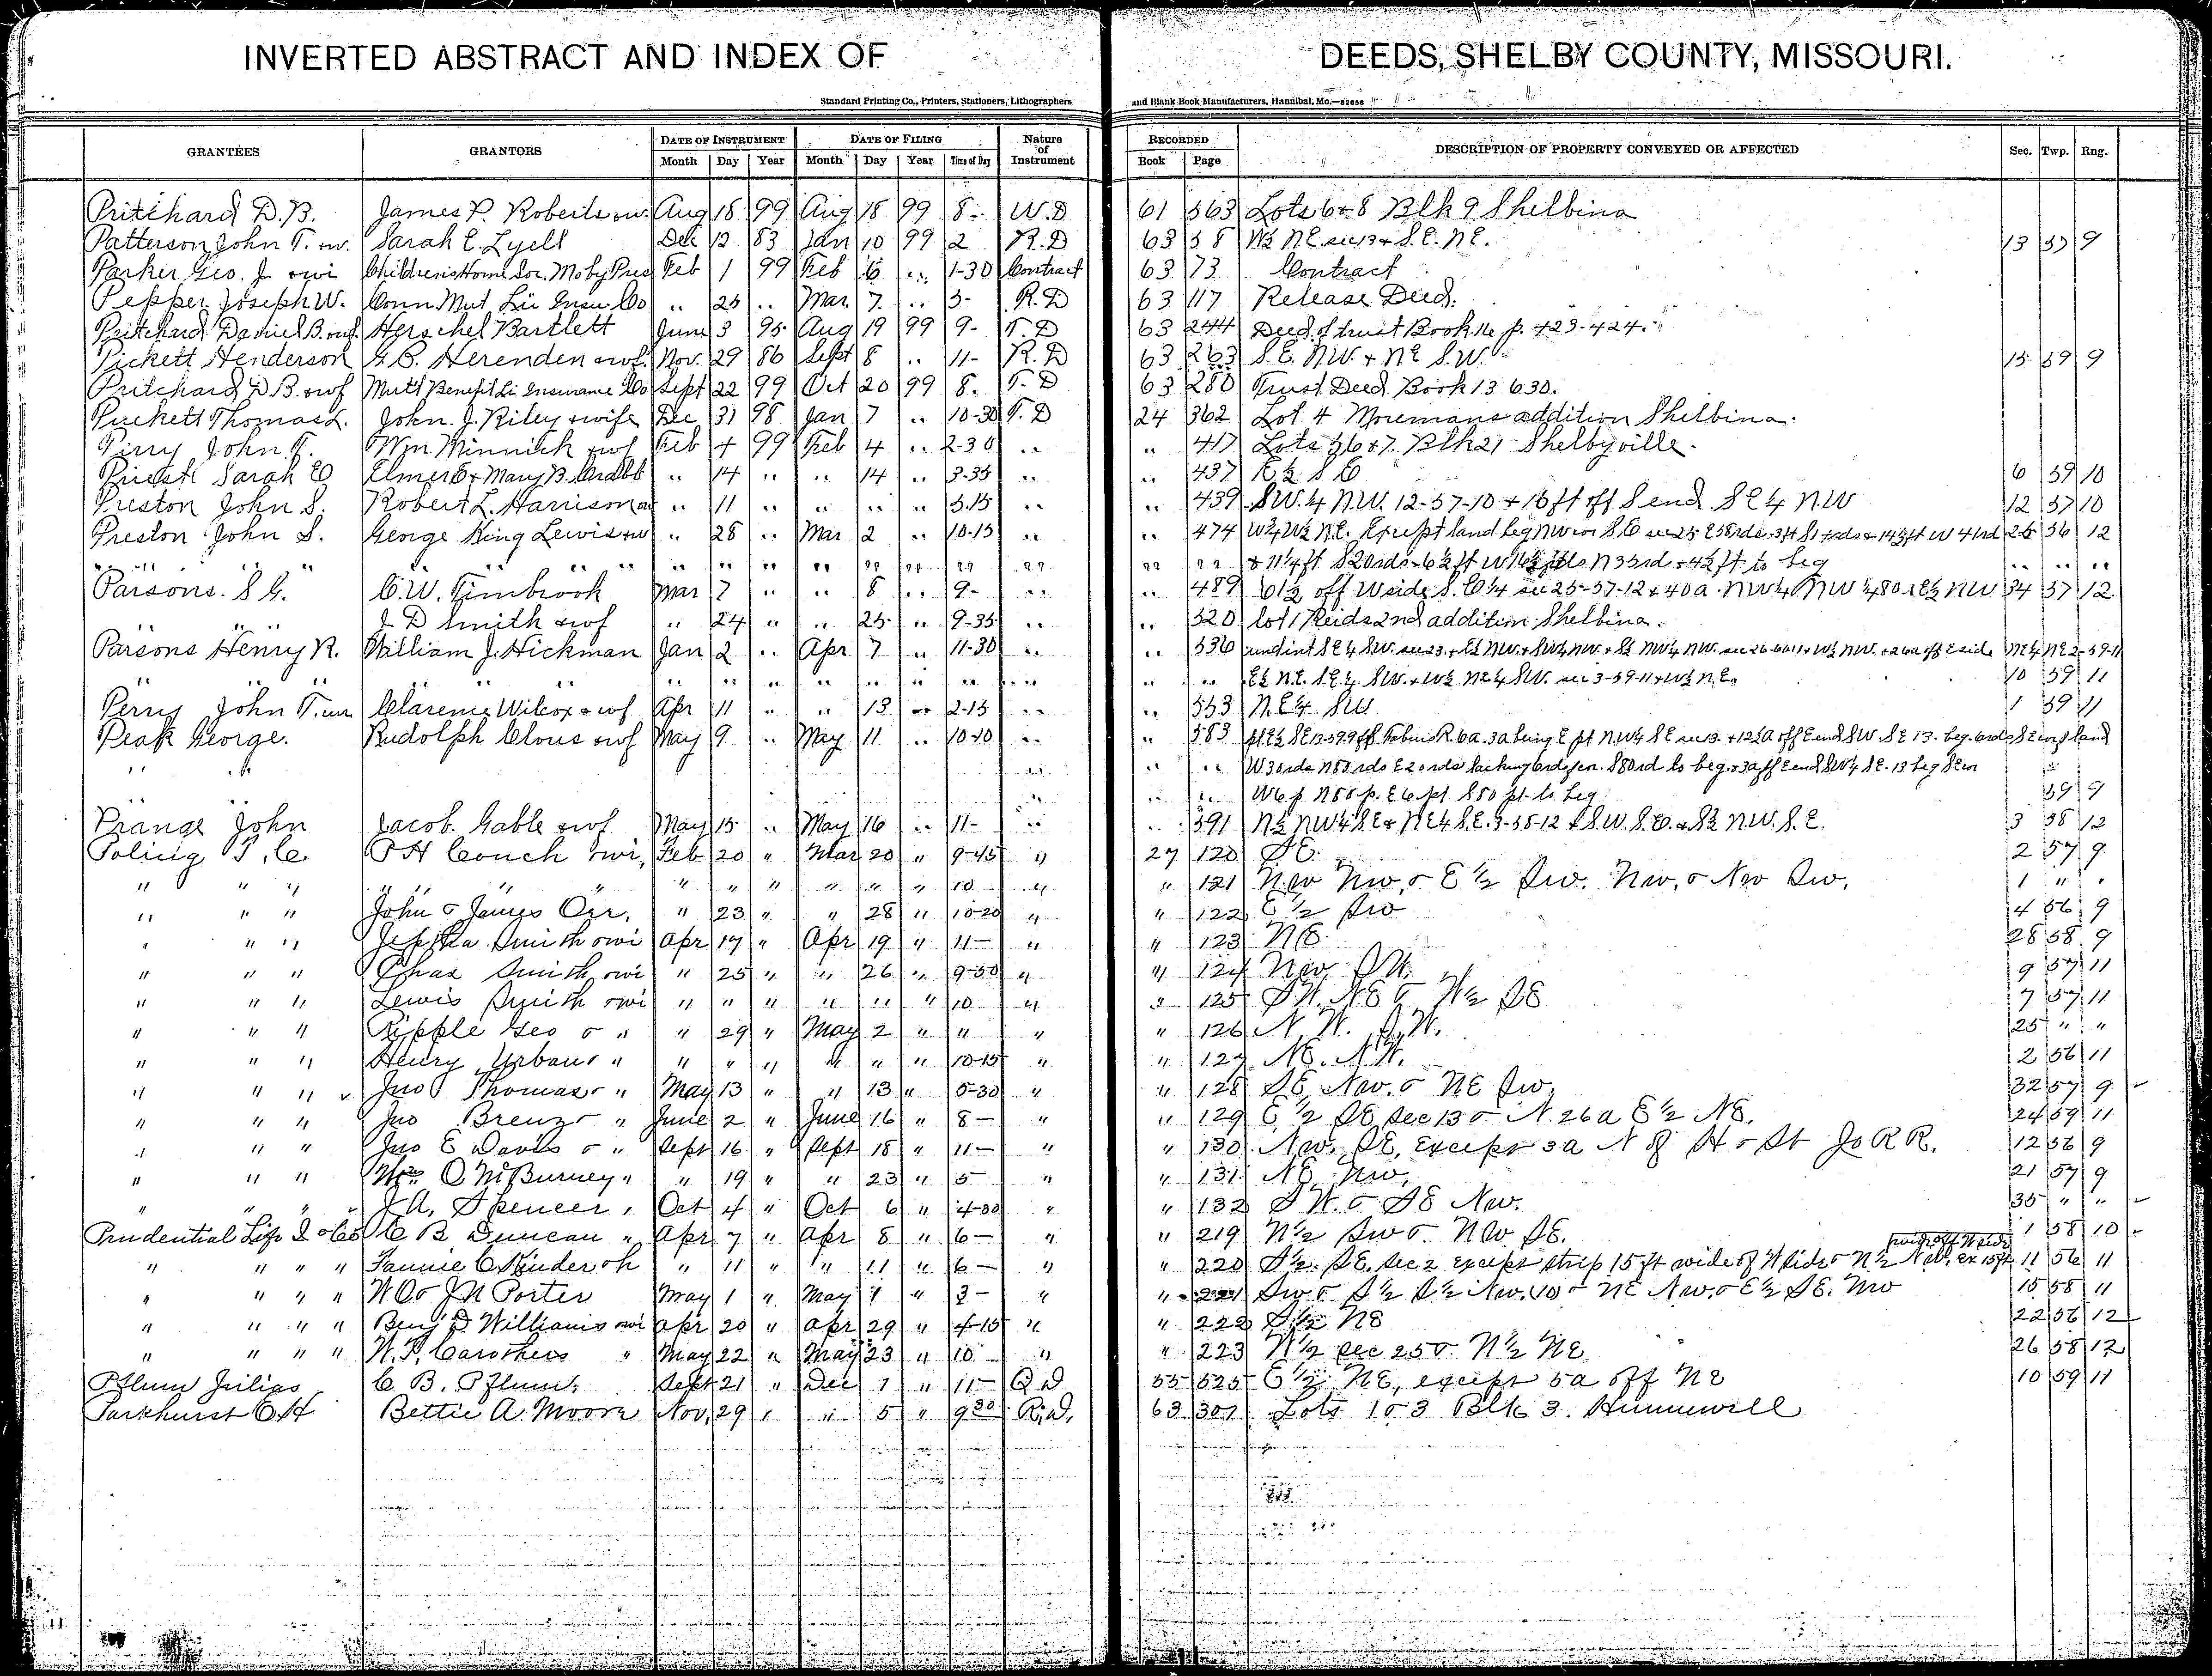 INVERTED ABSTRACT AND INDEX OF DEEDS, SHELBY COUNTY, MISSOURI.
Standard Printing Co., Printers, Stationers, Lithographers and Blank Book Manufacturers, Hannibal, Mo.—82658
GRANTEES GRANTORS DATE OF INSTRUMENT DATE OF FILING Nature of Instrument RECORDED DESCRIPTION OF PROPERTY CONVEYED OR AFFECTED Sec. Twp. Rng.
Month Day Year Month Day Year Time of Day Book Page
Pritchard D.B. James P. Roberts ow. Aug 18 99 Aug 18 99 8- W.D 61 563 Lots 6 & 8 Blk 9 Shelbina
Patterson John T. ow. Sarah E. Lyell Dec 12 83 Jan 10 99 2 R.D 63 58 W½ NE sec 13 & S.E. NE. 13 57 9
Parker Geo. J. owi Childrens Home Soc. Mo by Pres Feb 1 99 Feb 6 .. 1-30 Contract 63 73 Contract
Pepper Joseph W. Conn. Mut. Life Insu. Co .. 25 .. Mar. 7 .. 3- R.D 63 117 Release Deed.
Pritchard Daniel B. owf. Herschel Bartlett June 3 95 Aug 19 99 9- T.D 63 244 Deed of trust Book 16 p. 423-424.
Pickett Henderson G.B. Herenden & wf. Nov. 29 86 Sept 8 .. 11- R.D 63 263 S.E. NW. + NE S.W. 15 59 9
Pritchard D.B. owf Mutl Benefit Li Insurance Co Sept 22 99 Oct 20 99 8. T.D 63 280 Trust Deed Book 13 630.
Puckett Thomas L. John. J. Riley & wife Dec 31 98 Jan 7 .. 10-30 T.D 24 362 Lot 4 Moremans addition Shelbina.
Perry John T. Wm. Minnick & wf Feb 4 99 Feb 4 .. 2-30 .. .. 417 Lots 3 6 & 7. Blk 21 Shelbyville.
Priest Sarah E Elmer E & Mary B. Crabb .. 14 .. .. 14 .. 3-35 .. .. 437 E½ S E 6 59 10
Preston John S. Robert L. Harrison .. 11 .. .. .. .. 3.15 .. .. 439 SW.¼ N.W. 12-57-10 + 16 ft off S end. SE¼ N.W 12 57 10
Preston John S. George King Lewis ow .. 28 .. Mar 2 .. 10-15 .. .. 474 W½ W½ N.E. Except land beg NW cor 25 56 12
.. .. .. .. .. .. .. .. .. .. .. .. .. ft to beg .. .. ..
Parsons. S G. C.W. Timbrook Mar 7 .. .. 8 .. 9- .. .. 489 61½ off W side S.E¼ sec 25-57-12 + 40a. NW¼ NW ¼ 80a E½ NW 34 57 12
.. .. J D Smith & wf .. 24 .. .. 25. .. 9-35 .. .. 520 lot 1 Reids 2nd addition Shelbina.
Parsons Henry R. William J. Hickman Jan 2 .. Apr 7 .. 11-30 .. .. 536 und int SE¼ SW. sec 23. NE¼ NE 2-59-11
.. .. .. .. .. .. .. .. .. .. .. .. E½ N.E. SE¼ SW. + W½ NE¼ SW. sec 3-59-11 + W½ N.E. 10 59 11
Perry John T. Clarence Wilcox & wf Apr 11 .. .. 13 .. 2-15 .. .. 553 N.E¼ SW. 1 59 11
Peak George. Rudolph Clous owf May 9 .. May 11 .. 10-10 .. .. 583
.. .. .. .. .. W 30 rds N 80 rds E 20 rds
.. .. .. .. .. W 6 p. N 80 p. E 6 pt. S 80 pt. to beg 59 9
Prange John Jacob. Gable owf May 15 .. May 16 .. 11- .. .. 591 N½ NW¼ S.E & NE¼ S.E. 3-58-12 & S.W. S.E. & S½ N.W. S.E. 3 58 12
Poling T. C. P H Couch owi, Feb 20 " Mar 20 " 9-45 " 27 120 SE. 2 57 9
" " " " " " " " " " " 10 " " 121 Nw Nw, & E ½ Sw. Nw, & Nw Sw. 1 " "
" " " John & James Orr, " 23 " " 28 " 10-20 " " 122 E ½ Sw 4 56 9
" " " Jeptha Smith owi Apr 17 " Apr 19 " 11- " " 123 NE. 28 58 9
" " " Chas Smith, owi " 25 " " 26 " 9-50 " " 124 Nw, S W. 9 57 11
" " " Lewis Smith owi " " " " " " 10 " " 125 S W. NE & W½ SE 7 57 11
" " " Ripple Geo & " " 29 " May 2 " " " " 126 N. W. S.W. 25 " "
" " " Henry Urban " " " " " " " 10-15 " " 127 NE. N.W. 2 56 11
" " " Jno Thomas & " May 13 " " 13 " 5-30 " " 128 SE, Nw. & NE Sw. 32 57 9
" " " Jno Brenz & " June 2 " June 16 " 8- " " 129 E. ½ SE Sec 13 & N. 26 a E ½ NE. 24 59 11
" " " Jno E Davis & " Sept 16 " Sept 18 " 11- " " 130 Nw. SE, except 3 a N of H & St Jo R R. 12 56 9
" " " Wm C McBurney " " 19 " " 23 " 5 " " 131 NE, Nw, 21 57 9
" " " J A, Spencer, Oct 4 " Oct 6 " 4-30 " " 132 S W. & SE Nw. 35 " "
Prudential Life I Co C B Duncan " Apr 7 " Apr 8 " 6- " " 219 N½ Sw & NW SE. 1 58 10
" " " " Fannie C Kinderoh " 11 " " 11 " 6- " " 220 S ½ SE, Sec 2 except strip 15 ft wide of W side & N ½ N ex 15 ft 11 56 11
" " " " W O & J N Porter May 1 " May 1 " 3- " " 221 Sw & S ½ S ½ Nw. 10 & NE Nw. & E ½ SE. Nw 15 58 11
" " " " Benj D Williams owi Apr 20 " Apr 29 " 4-15 " " 222 S ½ NE 22 56 12
" " " " W. P. Carothers " May 22 " May 23 " 10 " " 223 N½ Sec 25 & N½ NE 26 58 12
Pflum Julias C B. Pflum, Sept 21 " Dec 1 " 11- Q D 55 525 E ½ NE, except 5 a off NE 10 59 11
Parkhurst C. H Bettie A. Moore Nov, 29 " " 5 " 9 30 R.D, 63 307 Lots 1 & 3 Blk 3. Hunnewell